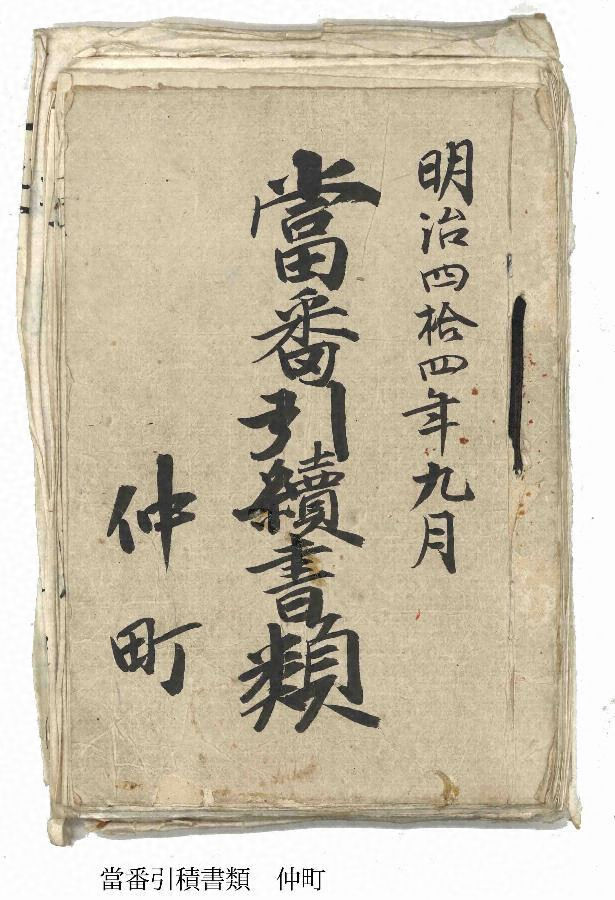 明治四拾四年九月
當番引續書類
仲町
當番引積書類　仲町